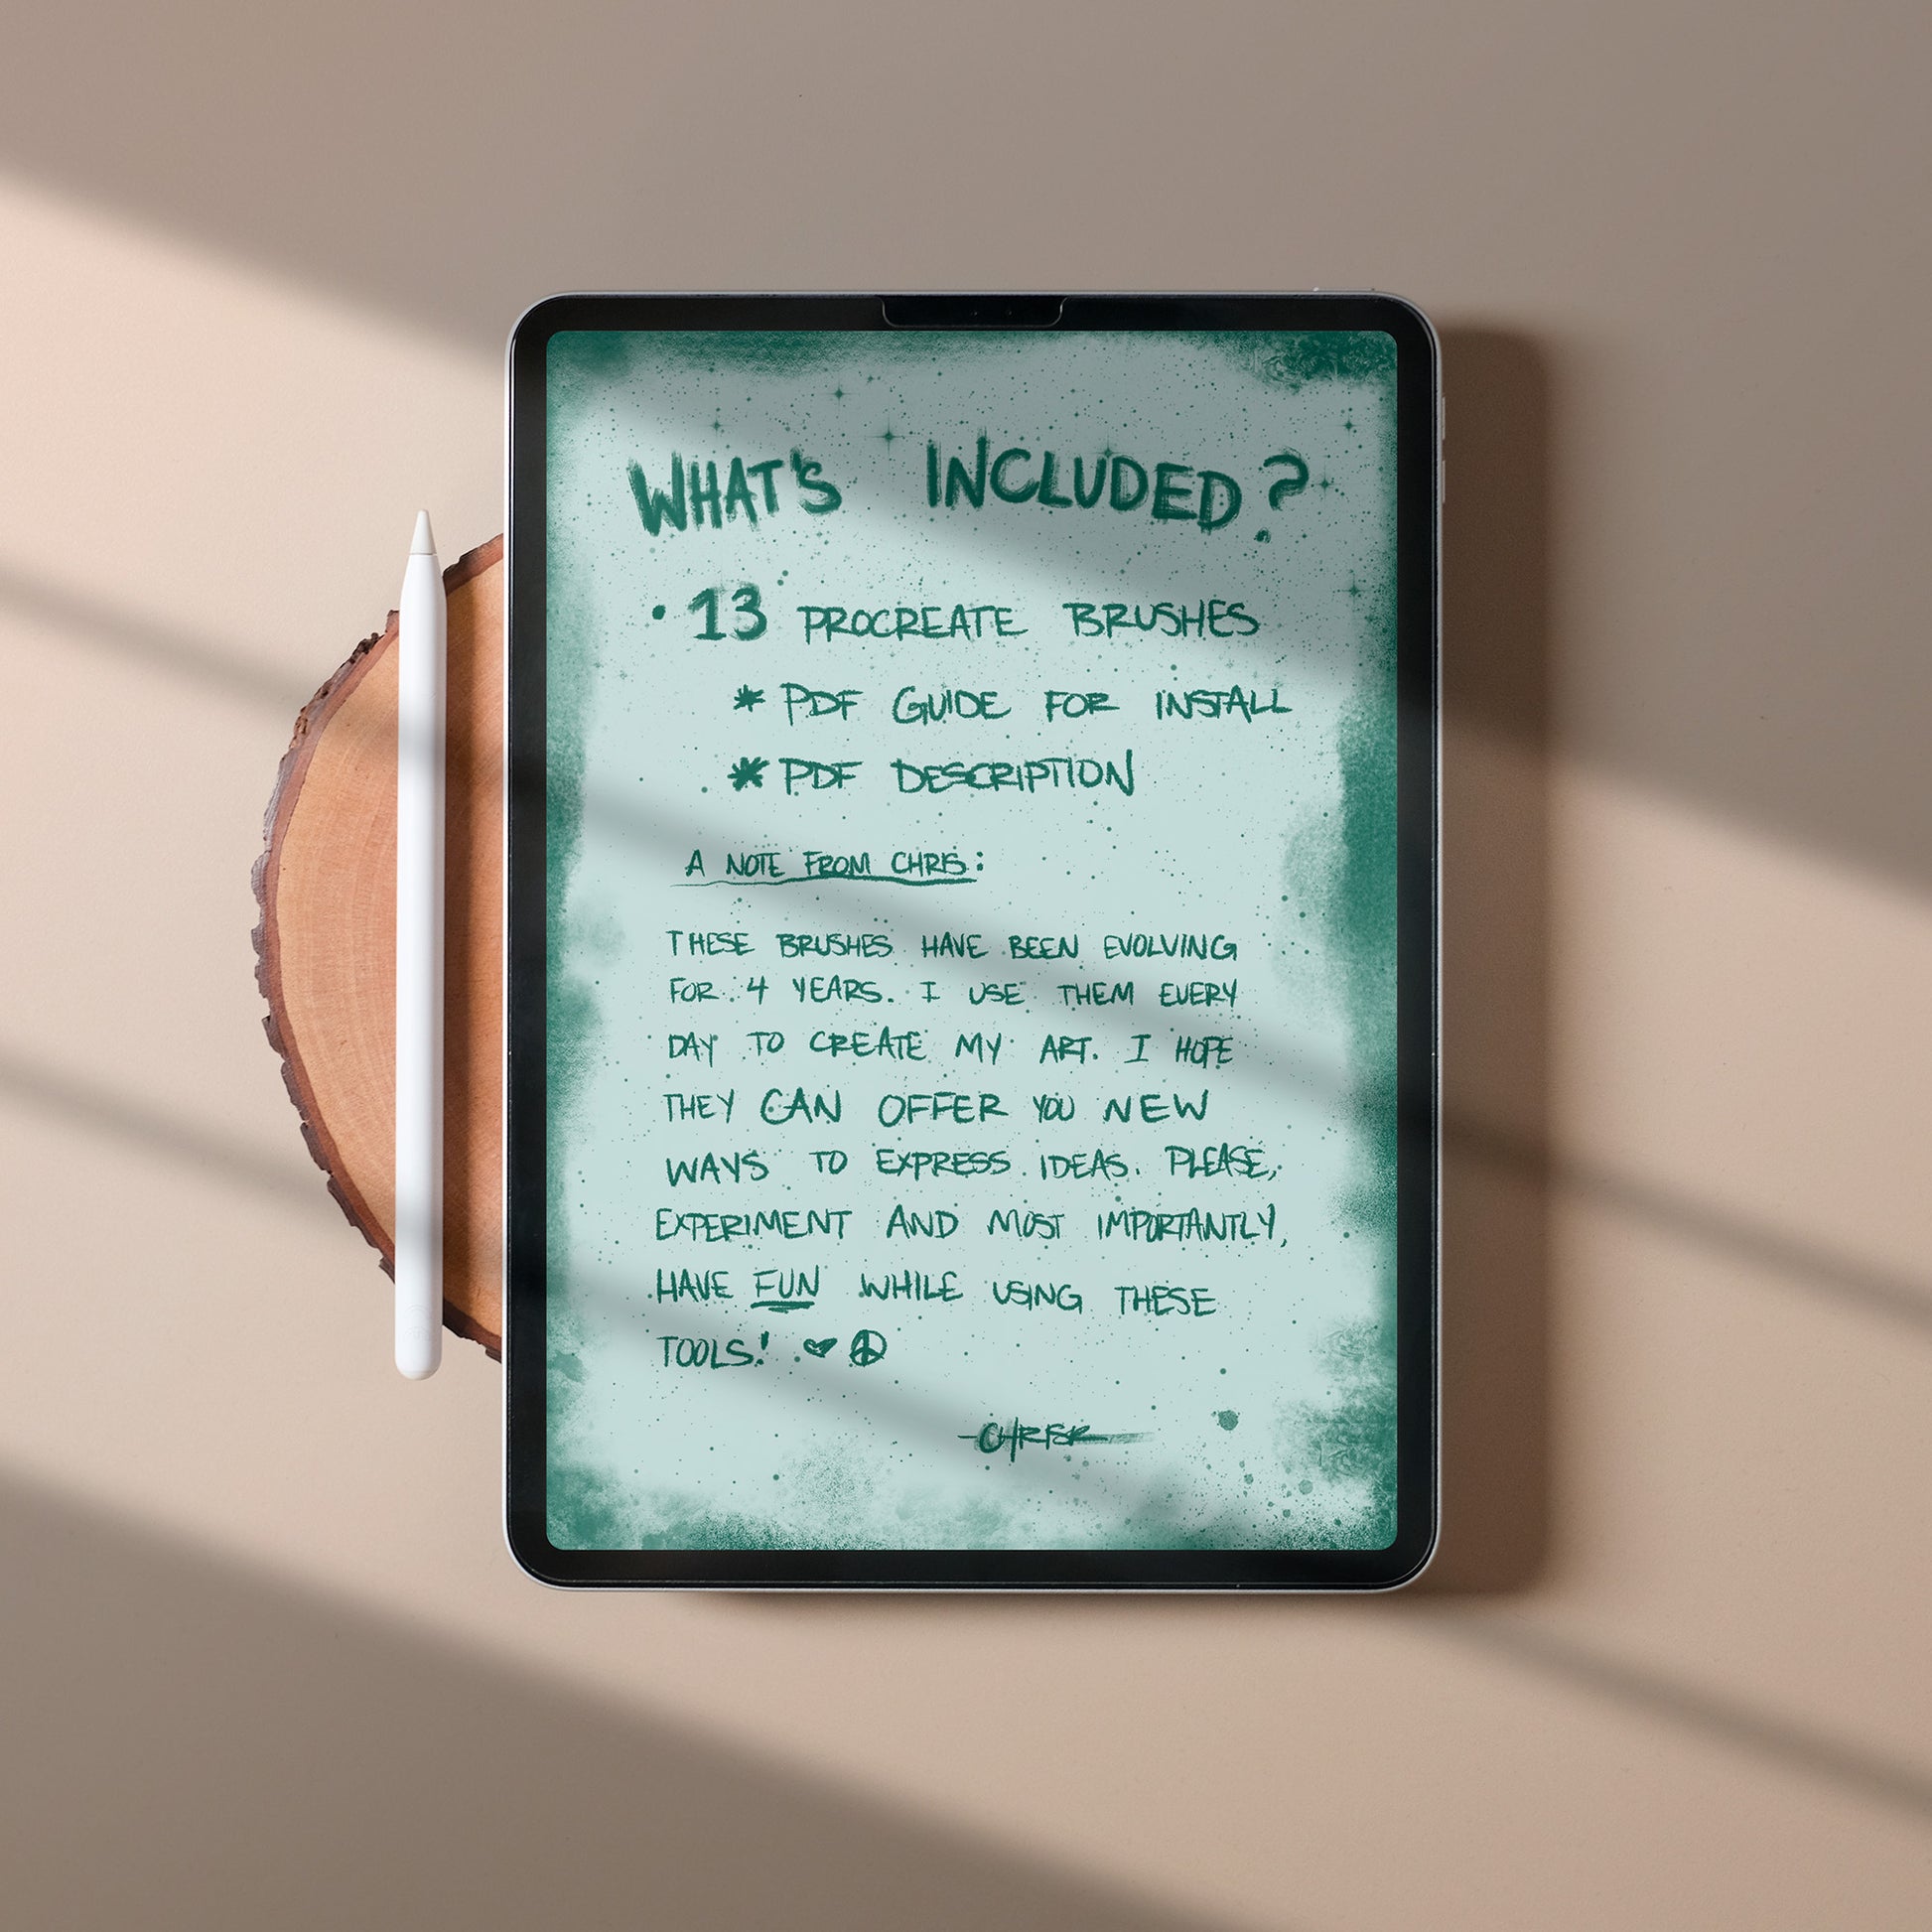 WHAT'S INCLUDED?
• 13 PROCREATE BRUSHES
* PDF GUIDE FOR INSTALL
* PDF DESCRIPTION
A NOTE FROM CHRIS:
THESE BRUSHES HAVE BEEN EVOLVING
FOR 4 YEARS. I USE THEM EVERY
DAY TO CREATE MY ART. I HOPE
THEY CAN OFFER YOU NEW
WAYS TO EXPRESS IDEAS. PLEASE,
EXPERIMENT AND MOST IMPORTANTLY,
HAVE FUN WHILE USING THESE
TOOLS! ♥ ☮